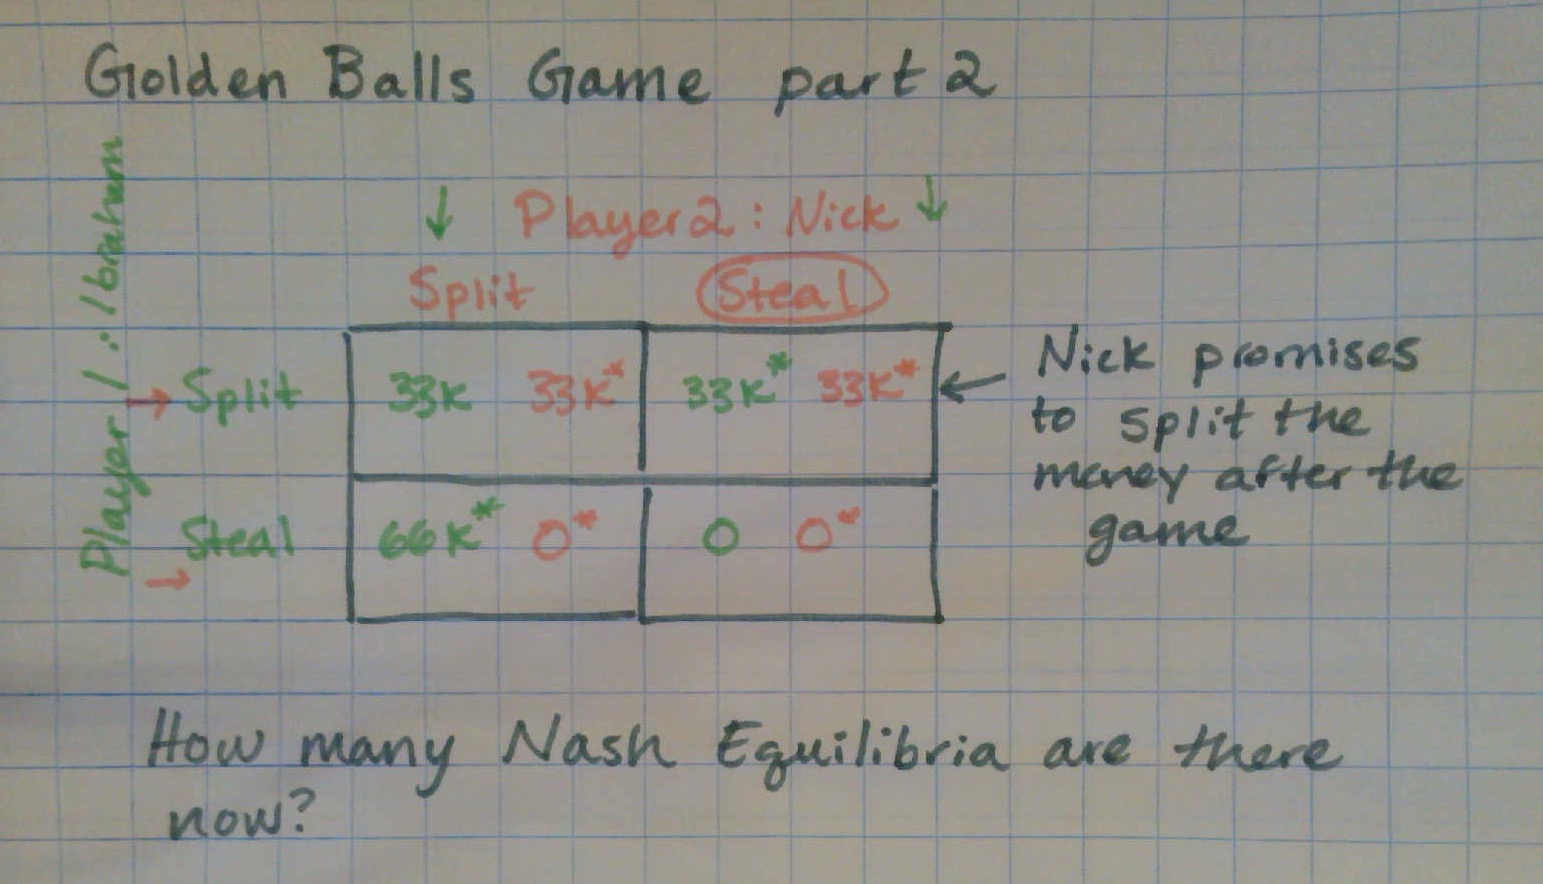 Golden Balls Game part 2
Player 1: Ibraham
↓ Player 2: Nick ↓
Split Steal
→ Split 33K 33K* 33K* 33K* ← Nick promises
to split the
money after the
game
→ Steal 66K* 0* 0 0*
How many Nash Equilibria are there
now?